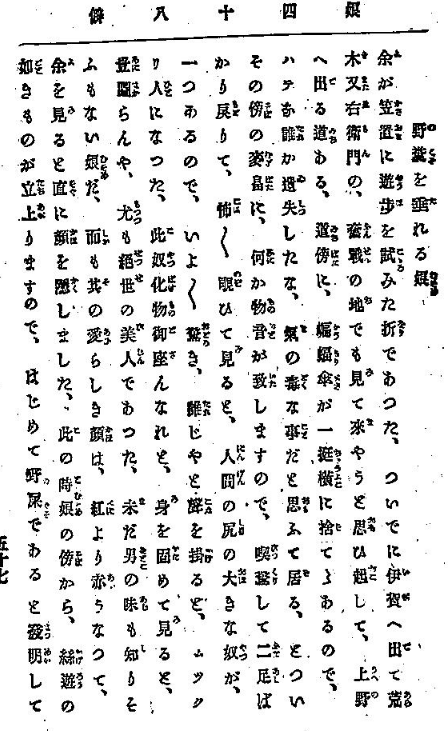 娯四十八癖
野糞を垂れる娘
余が笠置に遊歩を試みた折であつた、ついでに伊賀へ出て荒
木又右衛門の、奮戦の地でも見て來やうと思ひ起して、上野
へ出る道ある、道傍に、蝙蝠傘が一挺横に捨てゝあるので、
ハテな誰か遺失したな、氣の毒な事だと思ふて居る、とつい
その傍の麥畠に、何か物言が致しますので、喫驚して二足ば
かり戻りて、怖〳〵覗ひて見ると、人間の尻の大きな奴が、
一つあるので、いよ〳〵驚き、誰じやと聲を掛ると、ムツク
り人になつた、此奴化物御座んなれと、身を固めて見ると、
豈圖らんや、尤も絕世の美人であつた、未だ男の味も知りそ
ふもない娘だ、而も其の愛らしき顏は、紅より赤うなつて、
余を見ると直に顏を隱しました、此の時娘の傍から、絲遊の
如きものが立上りますので、はじめて野屎であると發明して
五十七